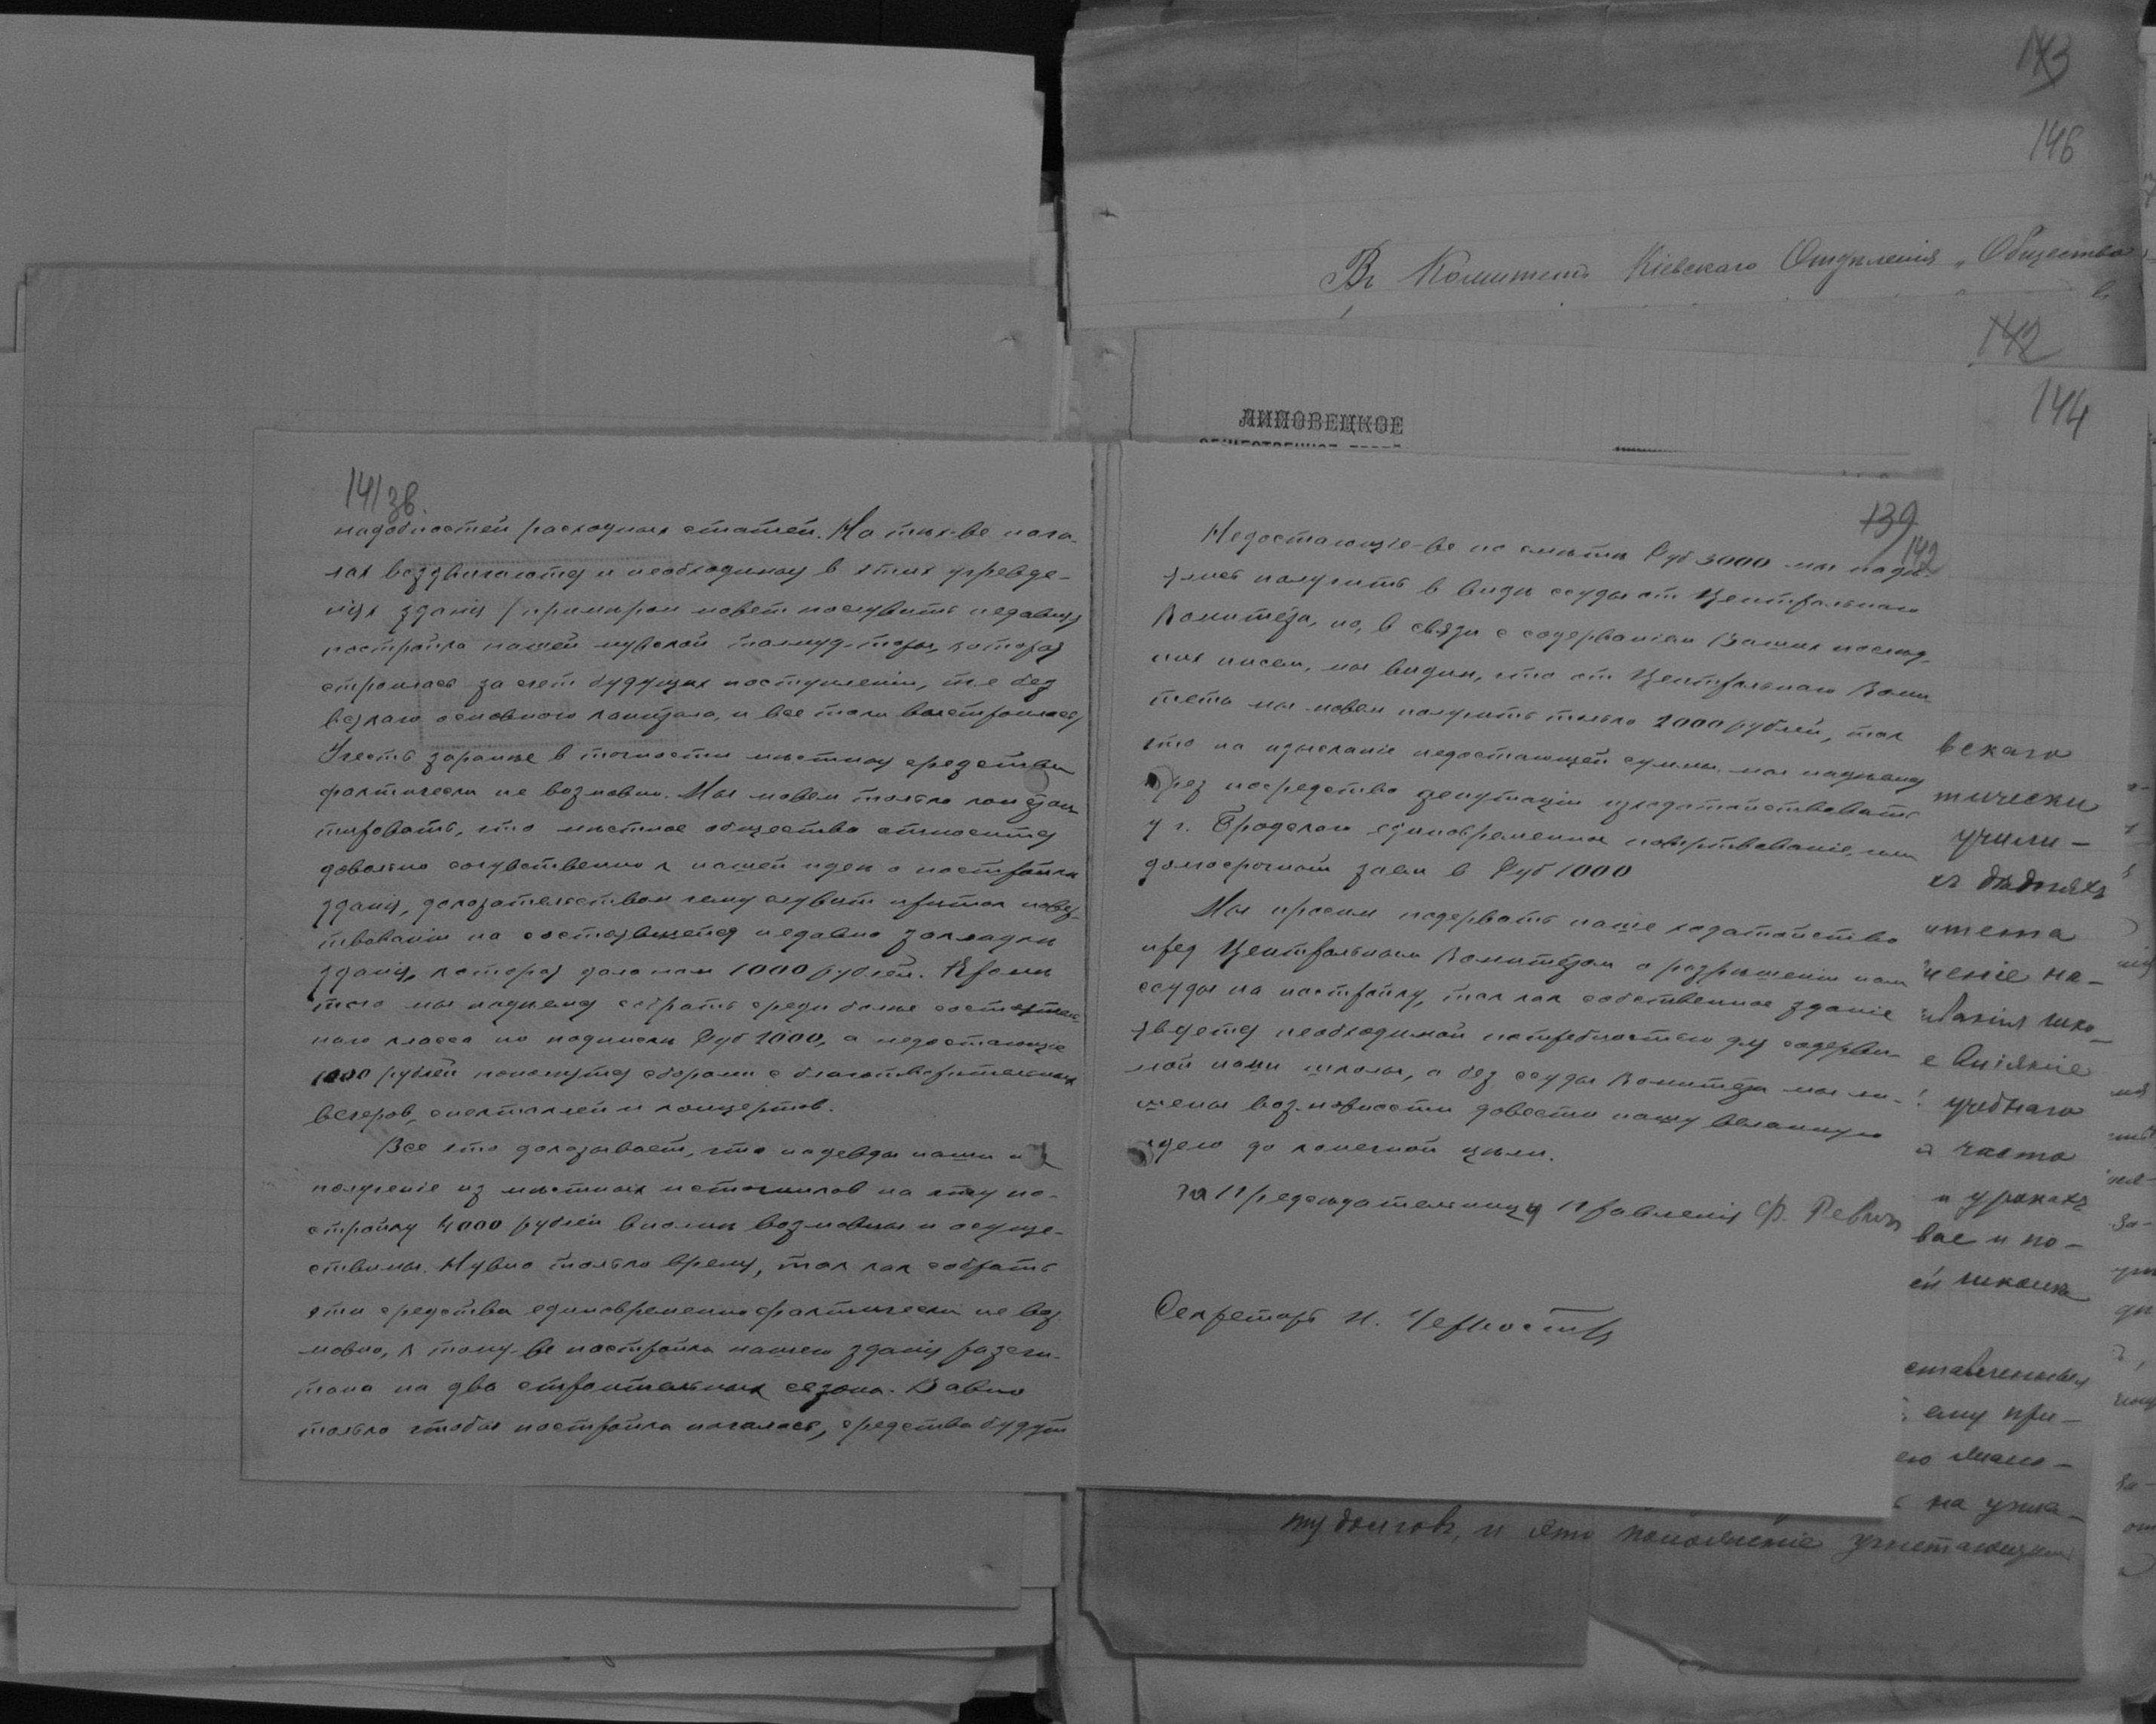 141 зв.
надобностей расходных статей. На тех-же нача-
лах воздвигаются и необходимыя в этих учрежде-
ніях зданія (примѣром может послужить недавняя
постройка нашей мужской талмуд-торы, которая
строилась за счет будущих поступленій, т.е. без
всякаго основного капитала, и все таки выстроилась)
Учесть заранѣе в точности мѣстныя средства
фактически не возможно. Мы можем только констан-
тировать, что мѣстное общество относится
довольно сочувственно к нашей идеи о постройкѣ
зданія, доказательством чему служит приток пожер-
твованій на состоявшейся недавно закладкѣ
зданія, которая дала нам 1000 рублей. Кромѣ
того мы надѣемся собрать среди болѣе состоятель-
наго класса по подпискѣ Руб 2000, а недостающіе
1000 рублей пополнятся сборами с благотворительных
вечеров, спектаклей и концертов.
Все это доказывает, что надежды наши на
полученіе из мѣстных источников на эту по-
стройку 4000 рублей вполнѣ возможны и осуще-
ствимы. Нужно только время, так как собрать
эти средства единовременно фактически не воз-
можно, к тому-же постройка нашего зданія разсчи-
тана на два строительных сезона. Важно
только чтобы постройка началась, средства будут
143
146
Въ Комитетъ Кіевскаго Отдѣленія „Общества
142
144
ЛИПОВЕЦКОЕ
139
142
Недостающіе-же по смѣтѣ Руб 3000 мы надѣ-
ялись получить в видѣ ссуды от Центральнаго
Комитета, но, в связи с содержаніем Ваших послѣд-
них писем, мы видим, что от Центральнаго Коми-
тета мы можем получить только 2000 рублей, так
что на изысканіе недостающей суммы мы надѣемся
чрез посредство депутаціи исходатайствовать
у г. Бродскаго единовременное пожертвованіе, или
долгосрочный заем в Руб 1000
Мы просим поддержать наше ходатайство
пред Центральным Комитетом о разрѣшеніи нам
ссуды на постройку, так как собственное зданіе
является необходимой потребностью для содержи-
мой нами школы, а без ссуды Комитета мы ли-
шены возможности довести нашу желанную
идею до конечной цѣли.
За Предсѣдательницу Правленія Ф. Ревич
Секретарь И.
вскаго
тически
учили-
итета
ченіе на-
е вліяніе
учебнаго
а часто
и урокахъ
вас и по-
ей школы
ставленных
ему при-
на ужа-
ту долговъ, и это пополненіе угнетающим